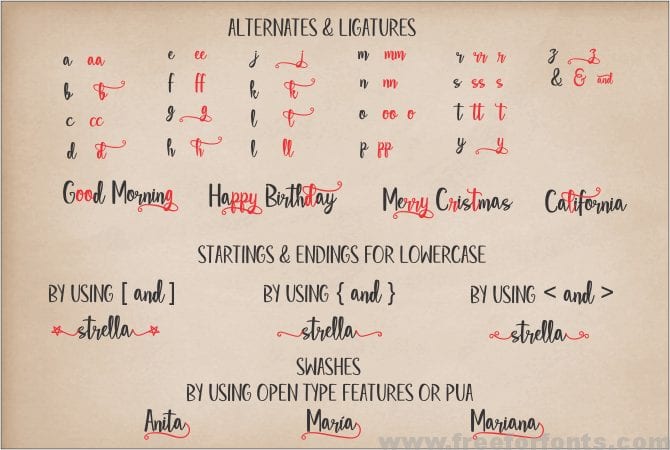 ALTERNATES & LIGATURES
a aa e ee j j m mm r rr r z z
b b f ff k k n nn s ss s & & and
c cc g g l l o oo o t tt t
d d h h l ll p pp y y
Good Morning Happy Birthday Merry Cristmas California
STARTINGS & ENDINGS FOR LOWERCASE
BY USING [ and ] BY USING { and } BY USING < and >
strella strella strella
SWASHES
BY USING OPEN TYPE FEATURES OR PUA
Anita María Mariana
www.freeforfonts.com